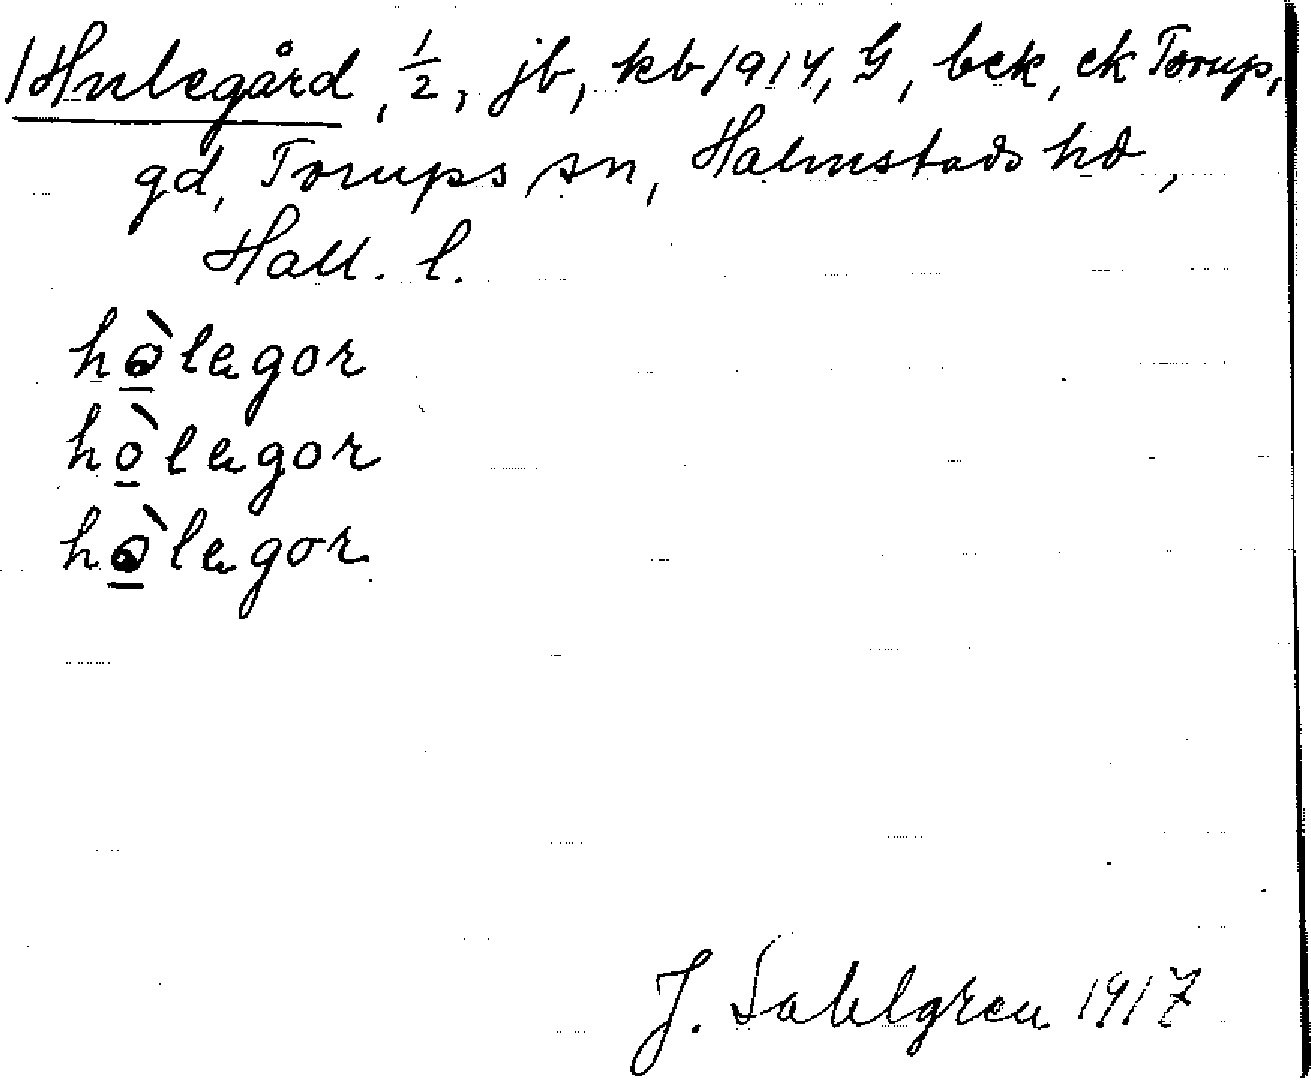 Hulegård, 1/2, jb, kb 1914, G, bek, ek Torup,
gd, Torups sn, Halmstads hd,
Hall. l.
hò̱lagor
hò̱lagor
hò̱lagor
J. Sahlgren 1917